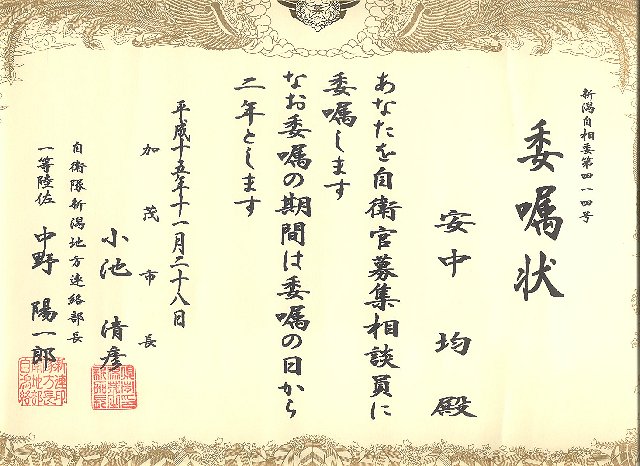 新潟自相委第四一四号
委嘱状
安中 均 殿
あなたを自衛官募集相談員に
委嘱します
なお委嘱の期間は委嘱の日から
二年とします
平成十五年十一月二十八日
加茂市長
小池 清彦
自衛隊新潟地方連絡部長
一等陸佐 中野 陽一郎